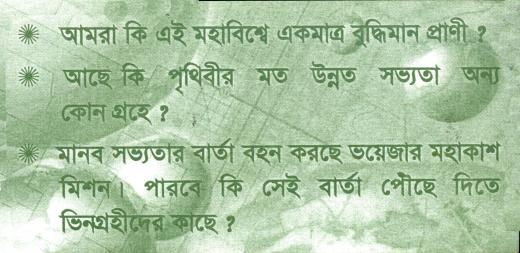 আমরা কি এই মহাবিশ্বে একমাত্র বুদ্ধিমান প্রাণী ?
আছে কি পৃথিবীর মত উন্নত সভ্যতা অন্য
কোন গ্রহে ?
মানব সভ্যতার বার্তা বহন করছে ভয়েজার মহাকাশ
মিশন। পারবে কি সেই বার্তা পৌঁছে দিতে
ভিনগ্রহীদের কাছে ?